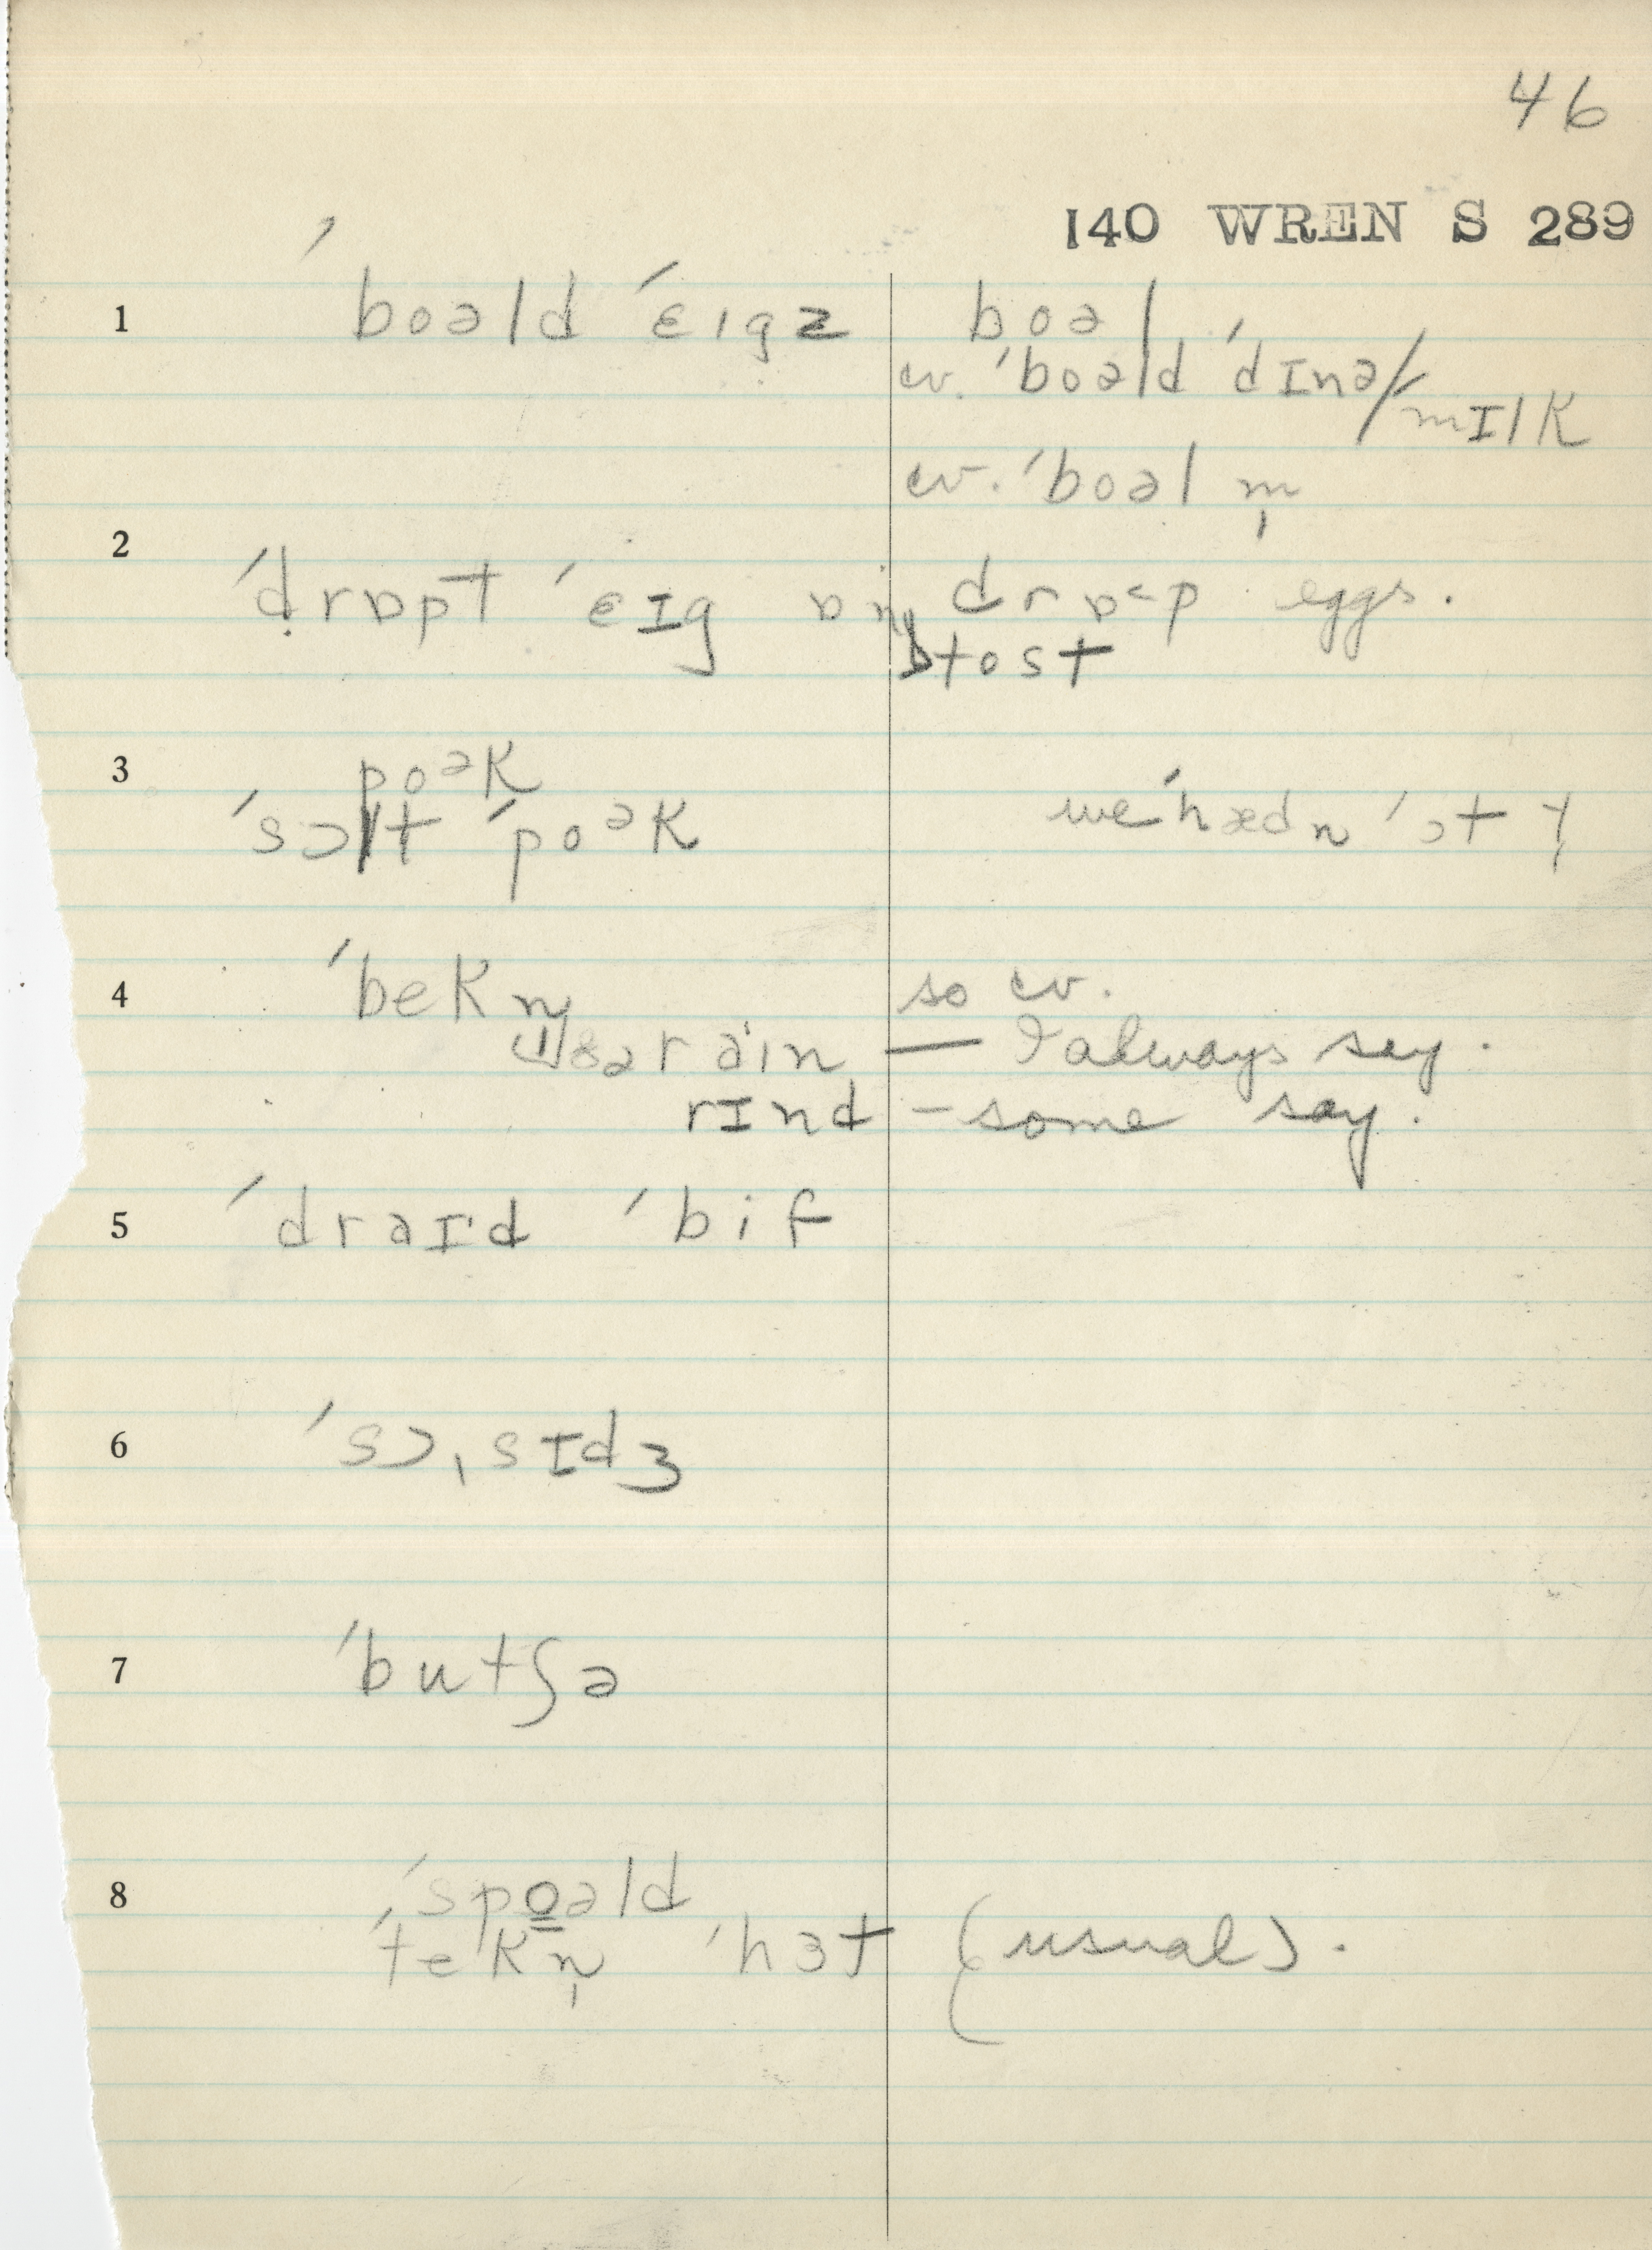 46
140 WREN S 289
1 ˈboəld ˈɛɪgz boəl
cv. ˈboəld ˈdɪnə/
mɪlk
cv. ˈboəl m̩
2 ˈdrɒpt ˈɛɪg ɒn drɒ˂p eggs.
tost
3 poᵊk
ˈsɔlt ˈpoᵊk we ˈhædn ˈɔt t
4 ˈbekn̩ so cv.
ðə raɪn — I always say.
rɪnd – some say.
5 ˈdraɪd ˈbif
6 ˈsɔˌsɪdʒ
7 ˈbutʃə
8 ˈspo̲əld
ˈtekn̩ ˈhɜt (usual).